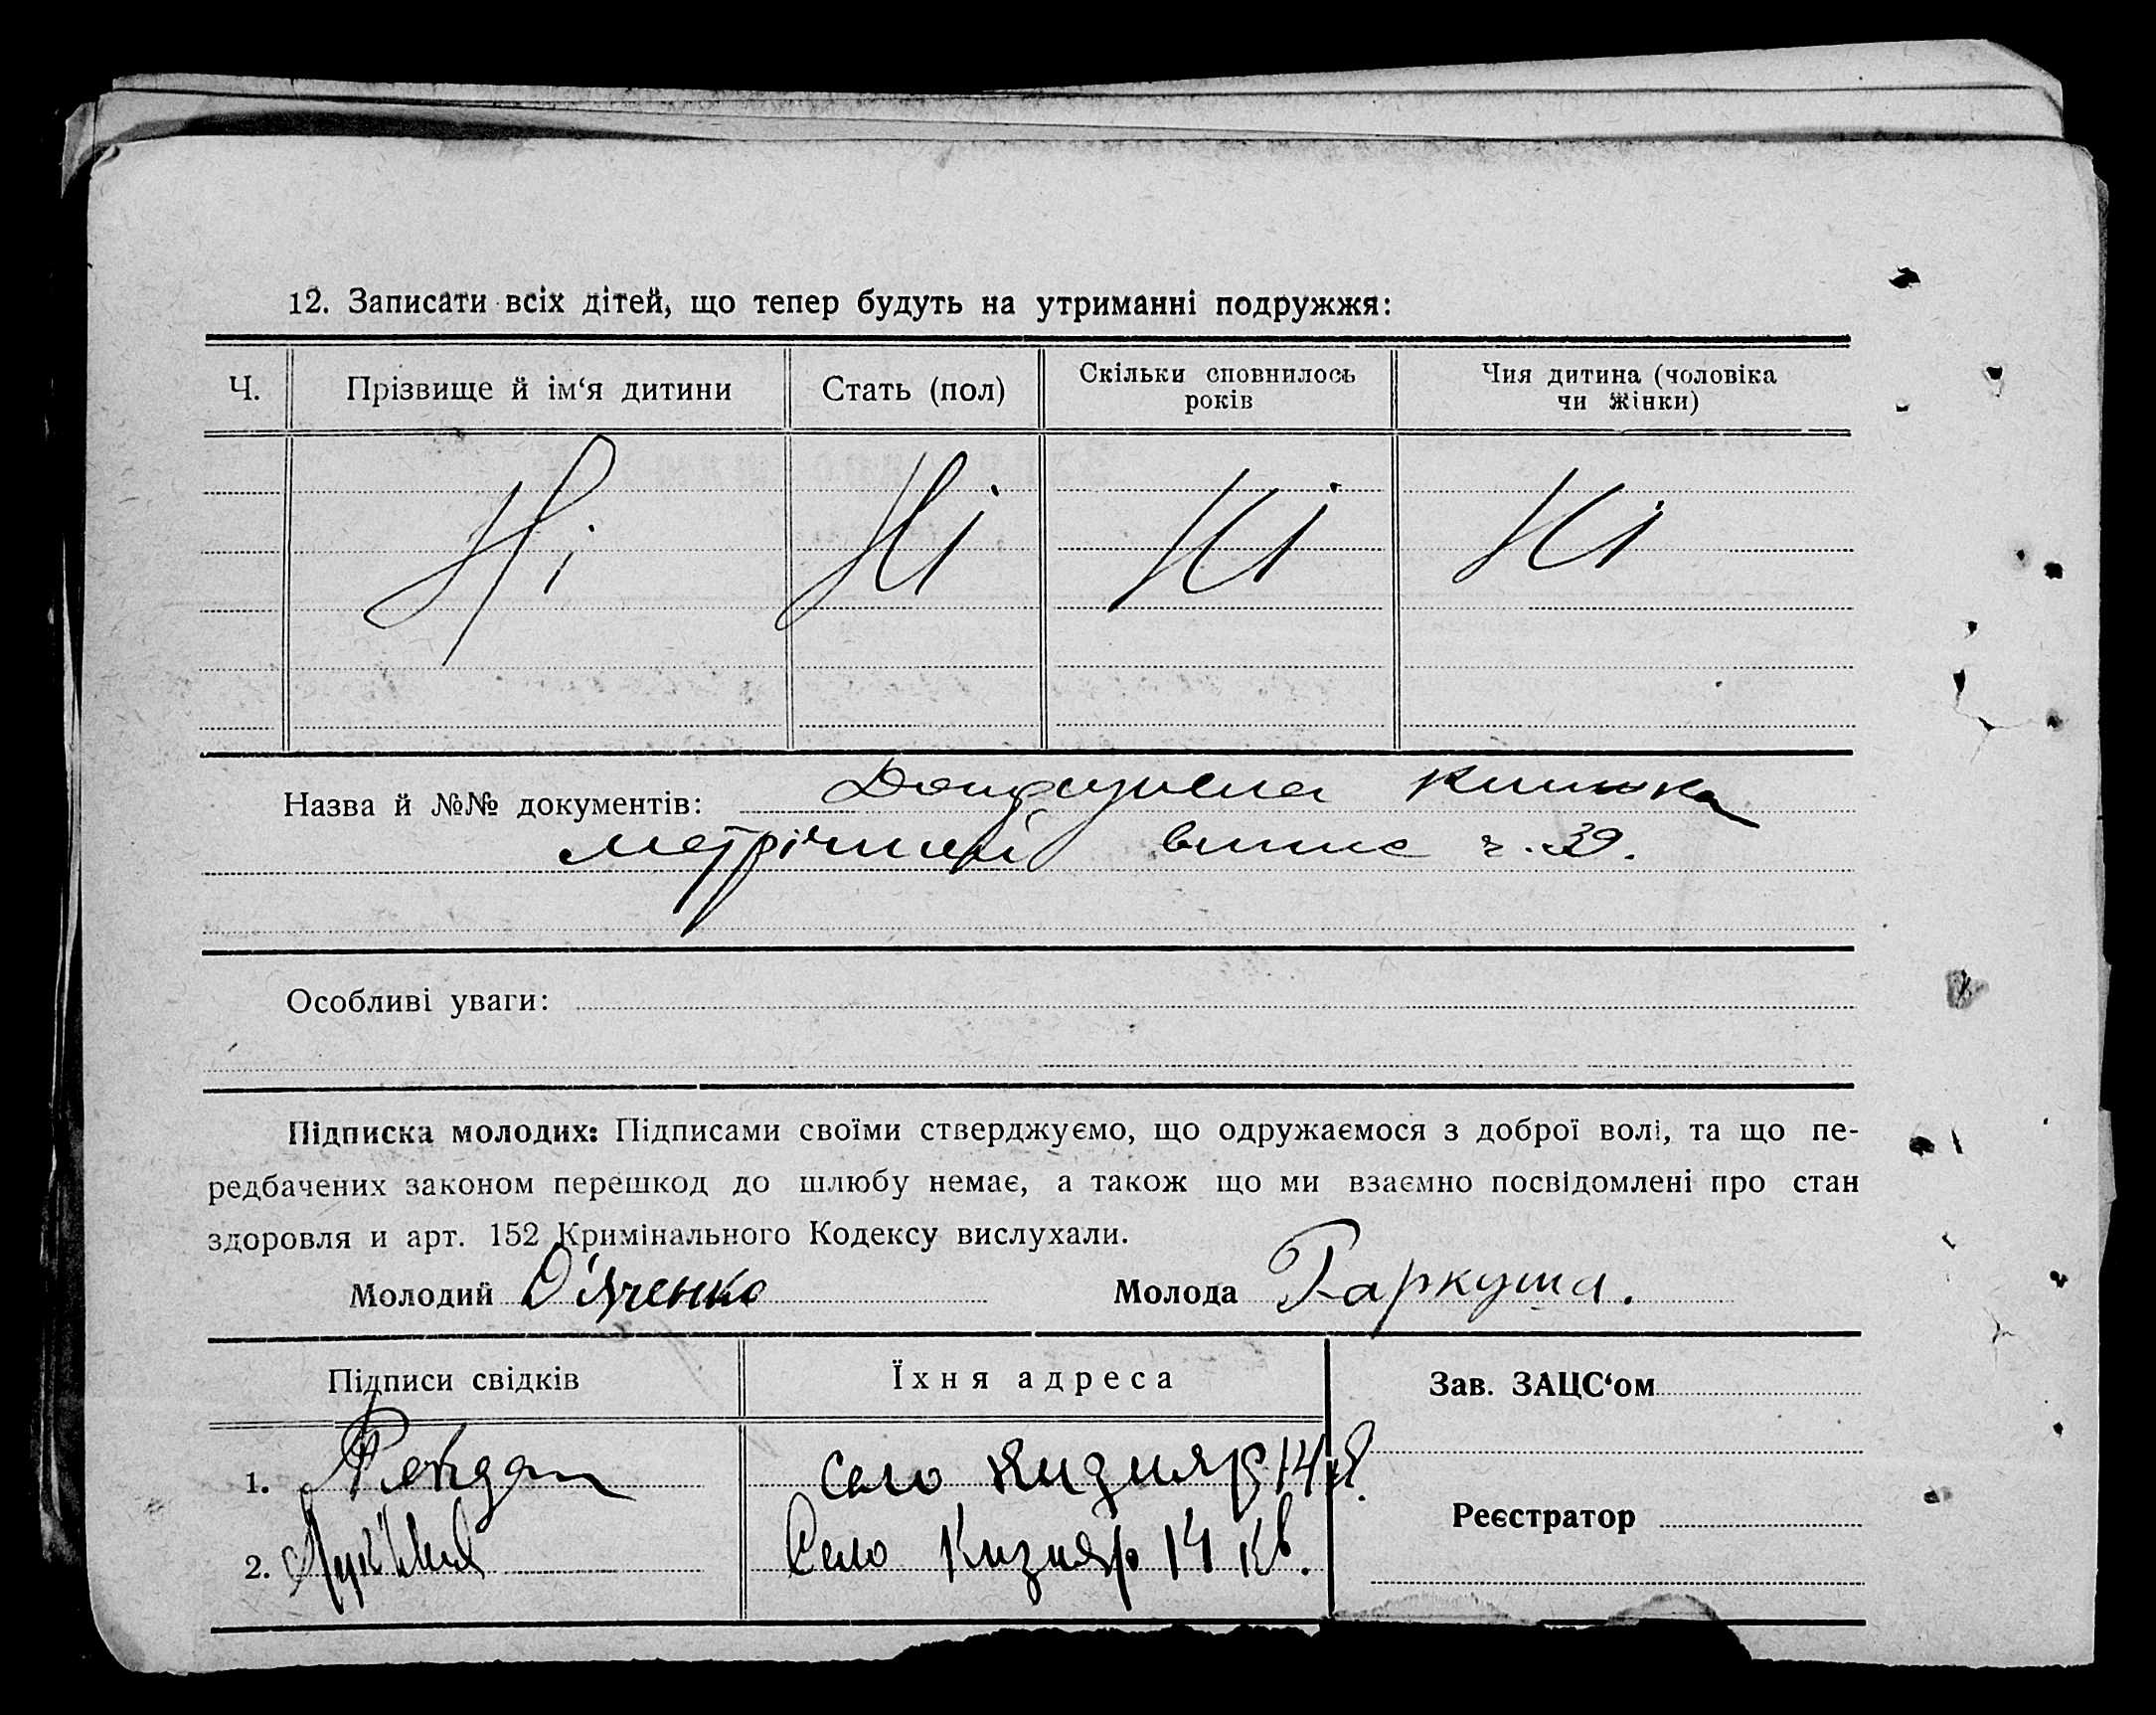 12. Записати всіх дітей, що тепер будуть на утриманні подружжя:
Ч. Прізвище й ім‘я дитини Стать (пол) Скільки сповнилось років Чия дитина (чоловіка чи жінки)
Ні Ні Ні Ні
Назва й №№ документів: книжка
метрічний випис ч. 39.
Особливі уваги:
Підписка молодих: Підписами своїми стверджуємо, що одружаємося з доброї волі, та що пе-
редбачених законом перешкод до шлюбу немає, а також що ми взаємно посвідомлені про стан
здоровля и арт. 152 Кримінального Кодексу вислухали.
Молодий Д'яченко Молода Гаркуша.
Підписи свідків Їхня адреса Зав. ЗАЦС‘ом
1. село Кизияр 14 кв.
Реєстратор
2. Село Кизияр 14 кв.